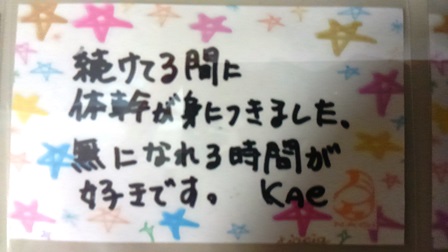 続けてる間に
体幹が身につきました。
無になれる時間が
好きです。 KAe